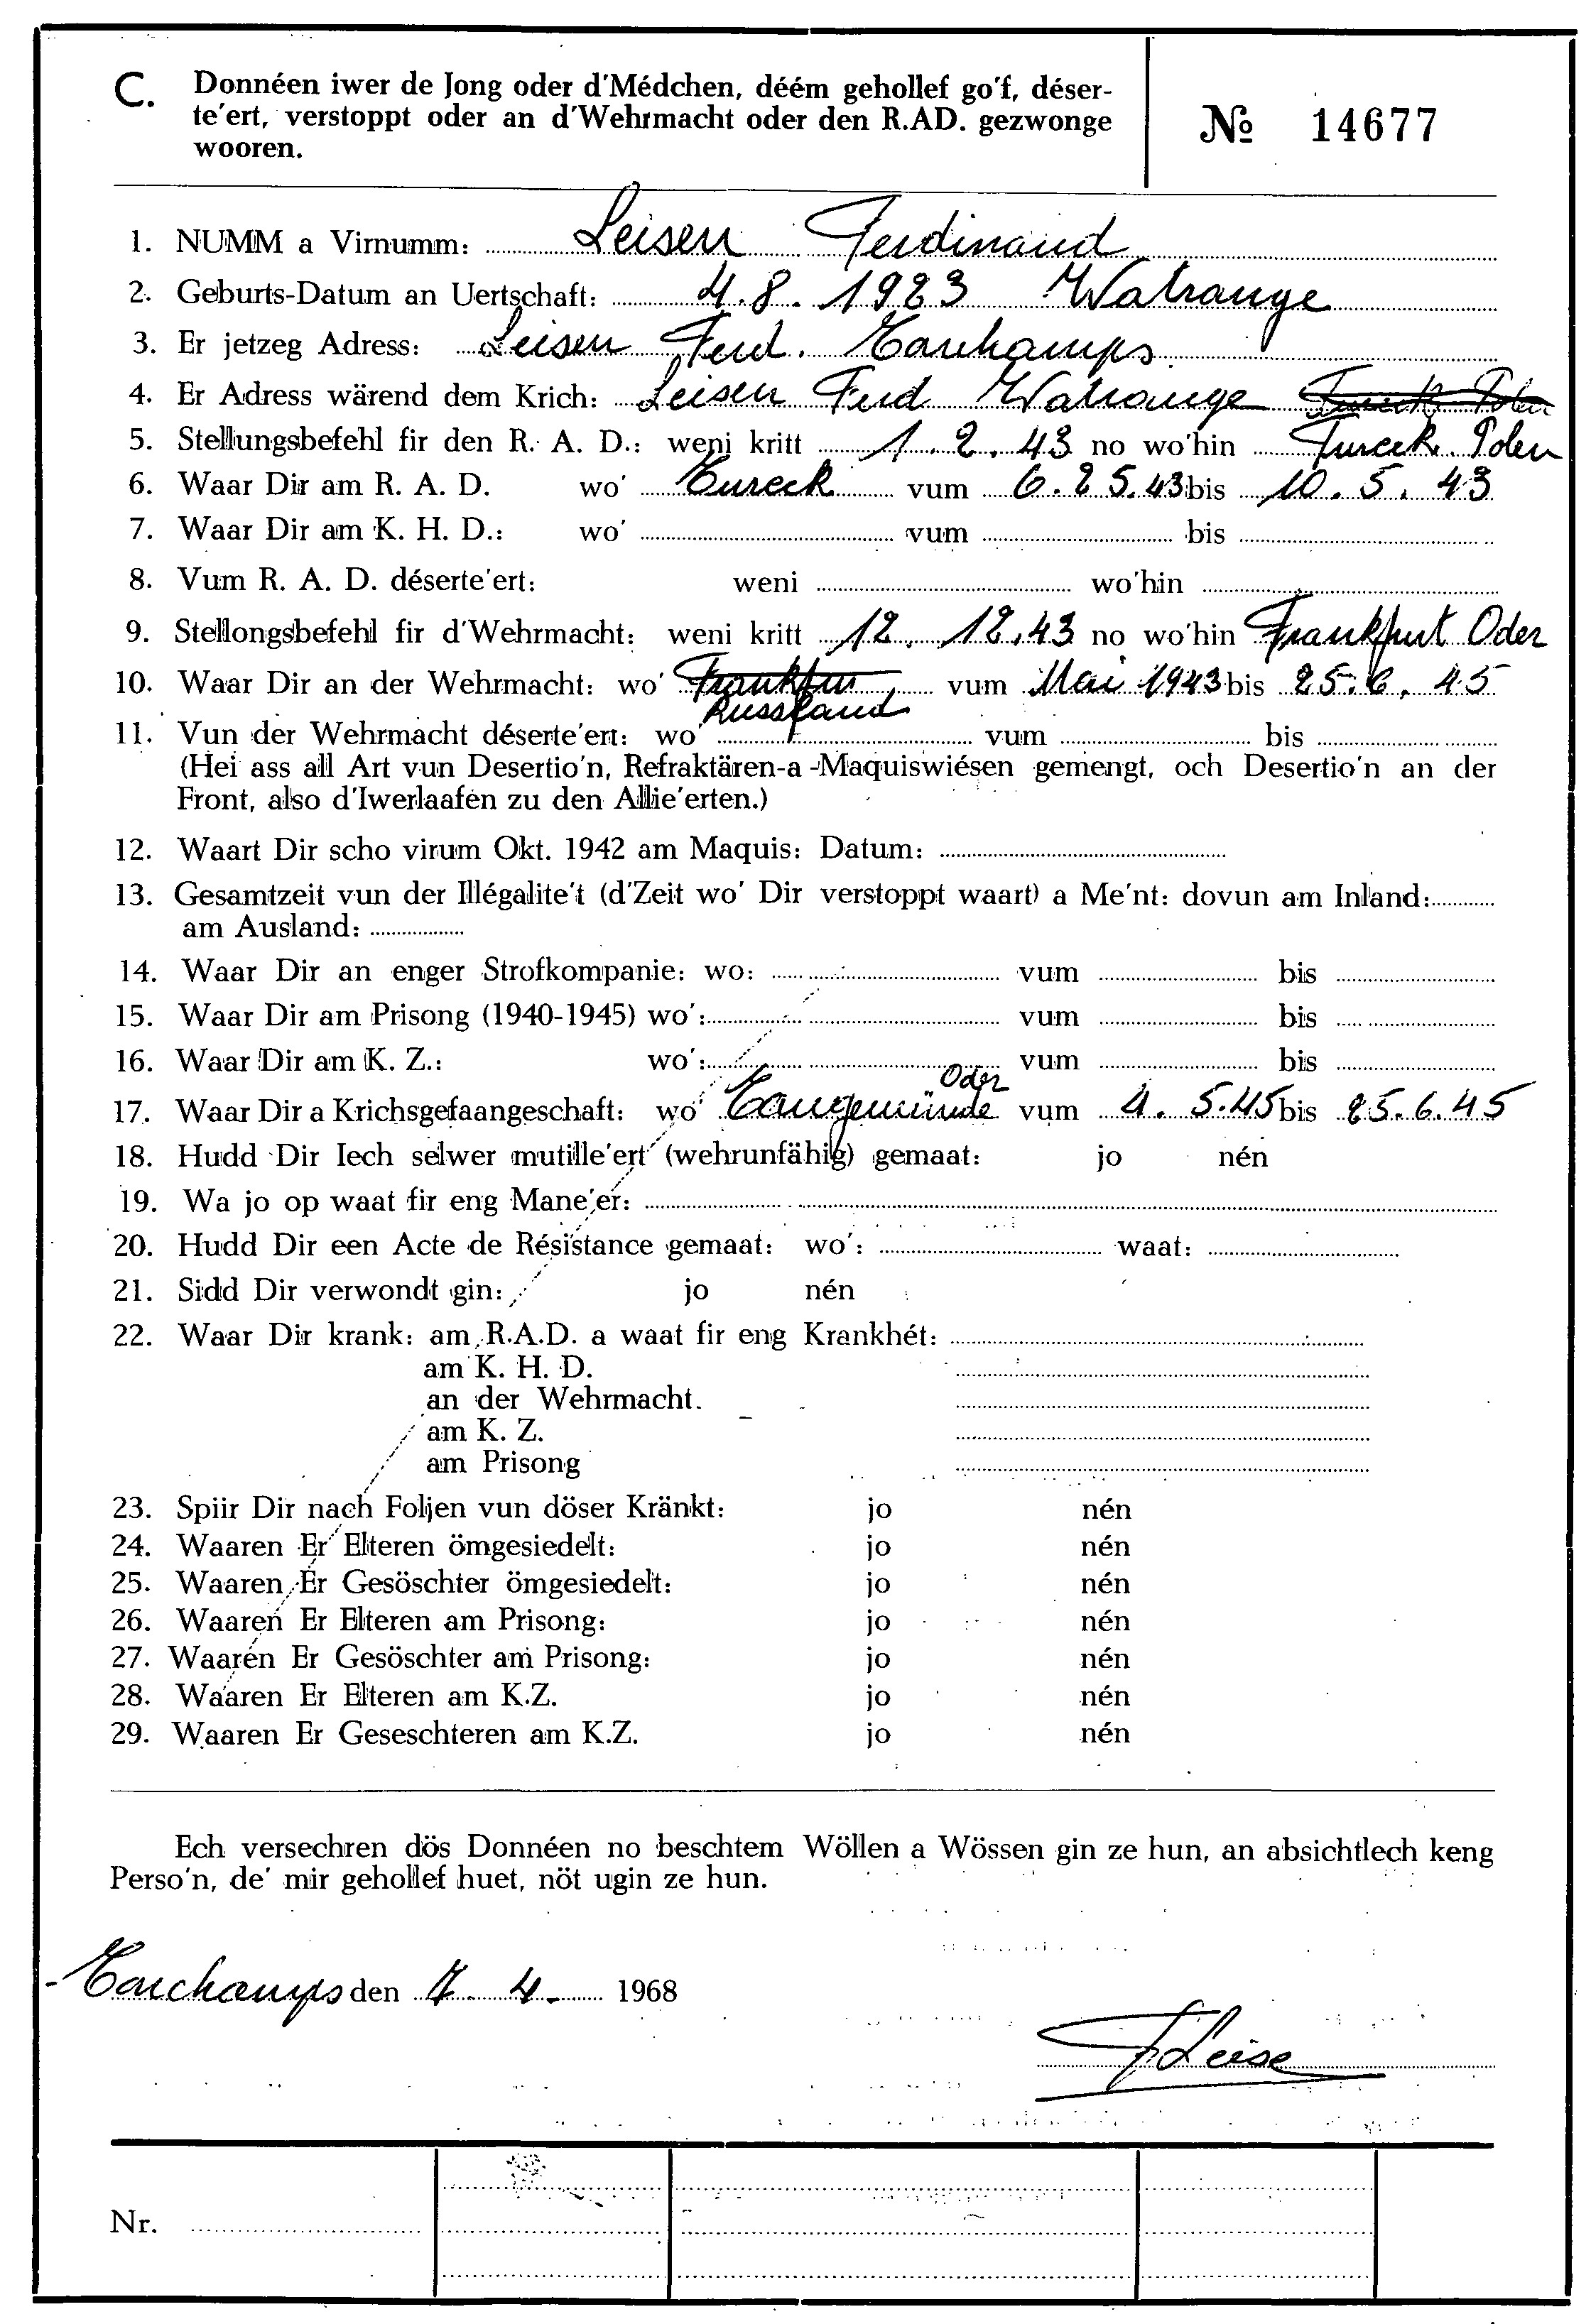 C. Donnéen iwer de Jong oder d'Médchen, déém gehollef go'f, déser-
te'ert, verstoppt oder an d'Wehrmacht oder den R.AD. gezwonge
wooren.
№ 14677
1. NUMM a Virnumm: Leisen Ferdinand
2. Geburts-Datum an Uertschaft: 4.8.1923 Watrange
3. Er jetzeg Adress: Leisen Ferd. Harchamps
4. Er Adress wärend dem Krich: Leisen Ferd Watrange Tureck Polen
5. Stellungsbefehl fir den R. A. D.: weni kritt 1.2.43 no wo'hin Tureck. Polen
6. Waar Dir am R. A. D. wo' Tureck vum 6.2 5.43 bis 10.5.43
7. Waar Dir am K. H. D.: wo' vum bis
8. Vum R. A. D. déserte'ert: weni wo'hin
9. Stellongsbefehl fir d'Wehrmacht: weni kritt 12.12.43 no wo'hin Frankfurt Oder
10. Waar Dir an der Wehrmacht: wo' Frankfur vum Mai 1943 bis 25.6.45
Russland
11. Vun der Wehrmacht déserte'ert: wo' vum bis
(Hei ass all Art vun Desertio'n, Refraktären-a-Maquiswiésen gemengt, och Desertio'n an der
Front, also d'Iwerlaafen zu den Allie'erten.)
12. Waart Dir scho virum Okt. 1942 am Maquis: Datum:
13. Gesamtzeit vun der Illégalite't (d'Zeit wo' Dir verstoppt waart) a Me'nt: dovun am Inland:
am Ausland:
14. Waar Dir an enger Strofkompanie: wo: vum bis
15. Waar Dir am Prisong (1940-1945) wo': vum bis
16. Waar Dir am K. Z.: wo': vum bis
Oder
17. Waar Dir a Krichsgefaangeschaft: wo' Tangemünde vum 4.5.45 bis 25.6.45
18. Hudd Dir Iech selwer mutille'ert (wehrunfähig) gemaat: jo nén
19. Wa jo op waat fir eng Mane'er:
20. Hudd Dir een Acte de Résistance gemaat: wo': waat:
21. Sidd Dir verwondt gin: jo nén
22. Waar Dir krank: am R.A.D. a waat fir eng Krankhét:
am K. H. D.
an der Wehrmacht.
am K. Z.
am Prisong
23. Spiir Dir nach Foljen vun döser Kränkt: jo nén
24. Waaren Er Elteren ömgesiedelt: jo nén
25. Waaren Er Gesöschter ömgesiedelt: jo nén
26. Waaren Er Elteren am Prisong: jo nén
27. Waaren Er Gesöschter am Prisong: jo nén
28. Waaren Er Elteren am K.Z. jo nén
29. Waaren Er Geseschteren am K.Z. jo nén
Ech versechren dös Donnéen no beschtem Wöllen a Wössen gin ze hun, an absichtlech keng
Perso'n, de' mir gehollef huet, nöt ugin ze hun.
Harchamps den 7.4. 1968
F Leise
Nr.